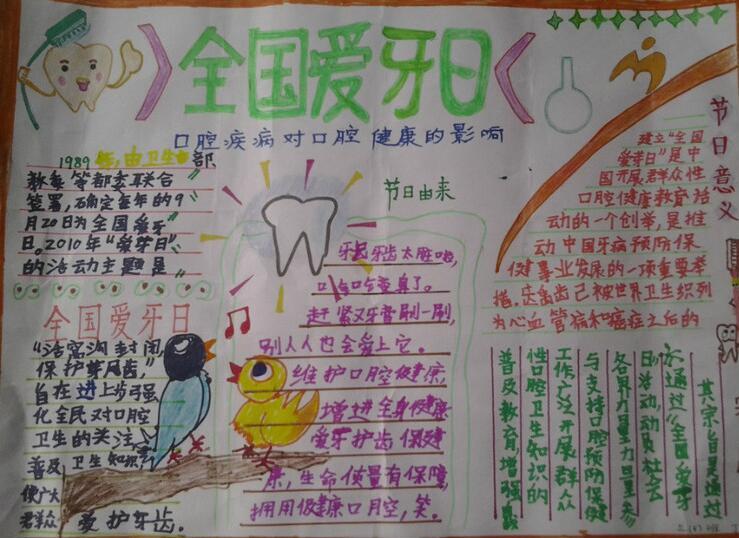 全国爱牙日
口腔疾病对口腔健康的影响
1989年,由卫生部
教委等部委联合
签署,确定每年的9
月20日为全国爱牙
日。2010年“爱牙日”
的活动主题是
全国爱牙日
“活窝沟封闭,
保护芽尾齿”
自在进上步强
化全民对口腔
卫生的关注
普及卫生知识
使广大
群众爱护牙齿.
节日由来
牙齿牙齿太脏啦,
臭了。
赶紧又牙膏刷一刷,
别人人也会爱上它。
维护口腔健康,
增进全身健康
爱牙护齿保健
康,生命质量有保障,
拥用健康口腔,笑。
节日意义
建立“全国
爱牙日”是中
国开展群众性
口腔健康教育活
动的一个创举,是推
动中国牙病预防保
健事业发展的一项重要举
措,龋齿已被世界卫生织列
为心血管病和癌症之后的
其宗旨是通过
通过“全国爱牙
日活动,动员社会
各界力量
与支持口腔预防保健
工作广泛开展群众
性口腔卫生知识的
普及教育增强